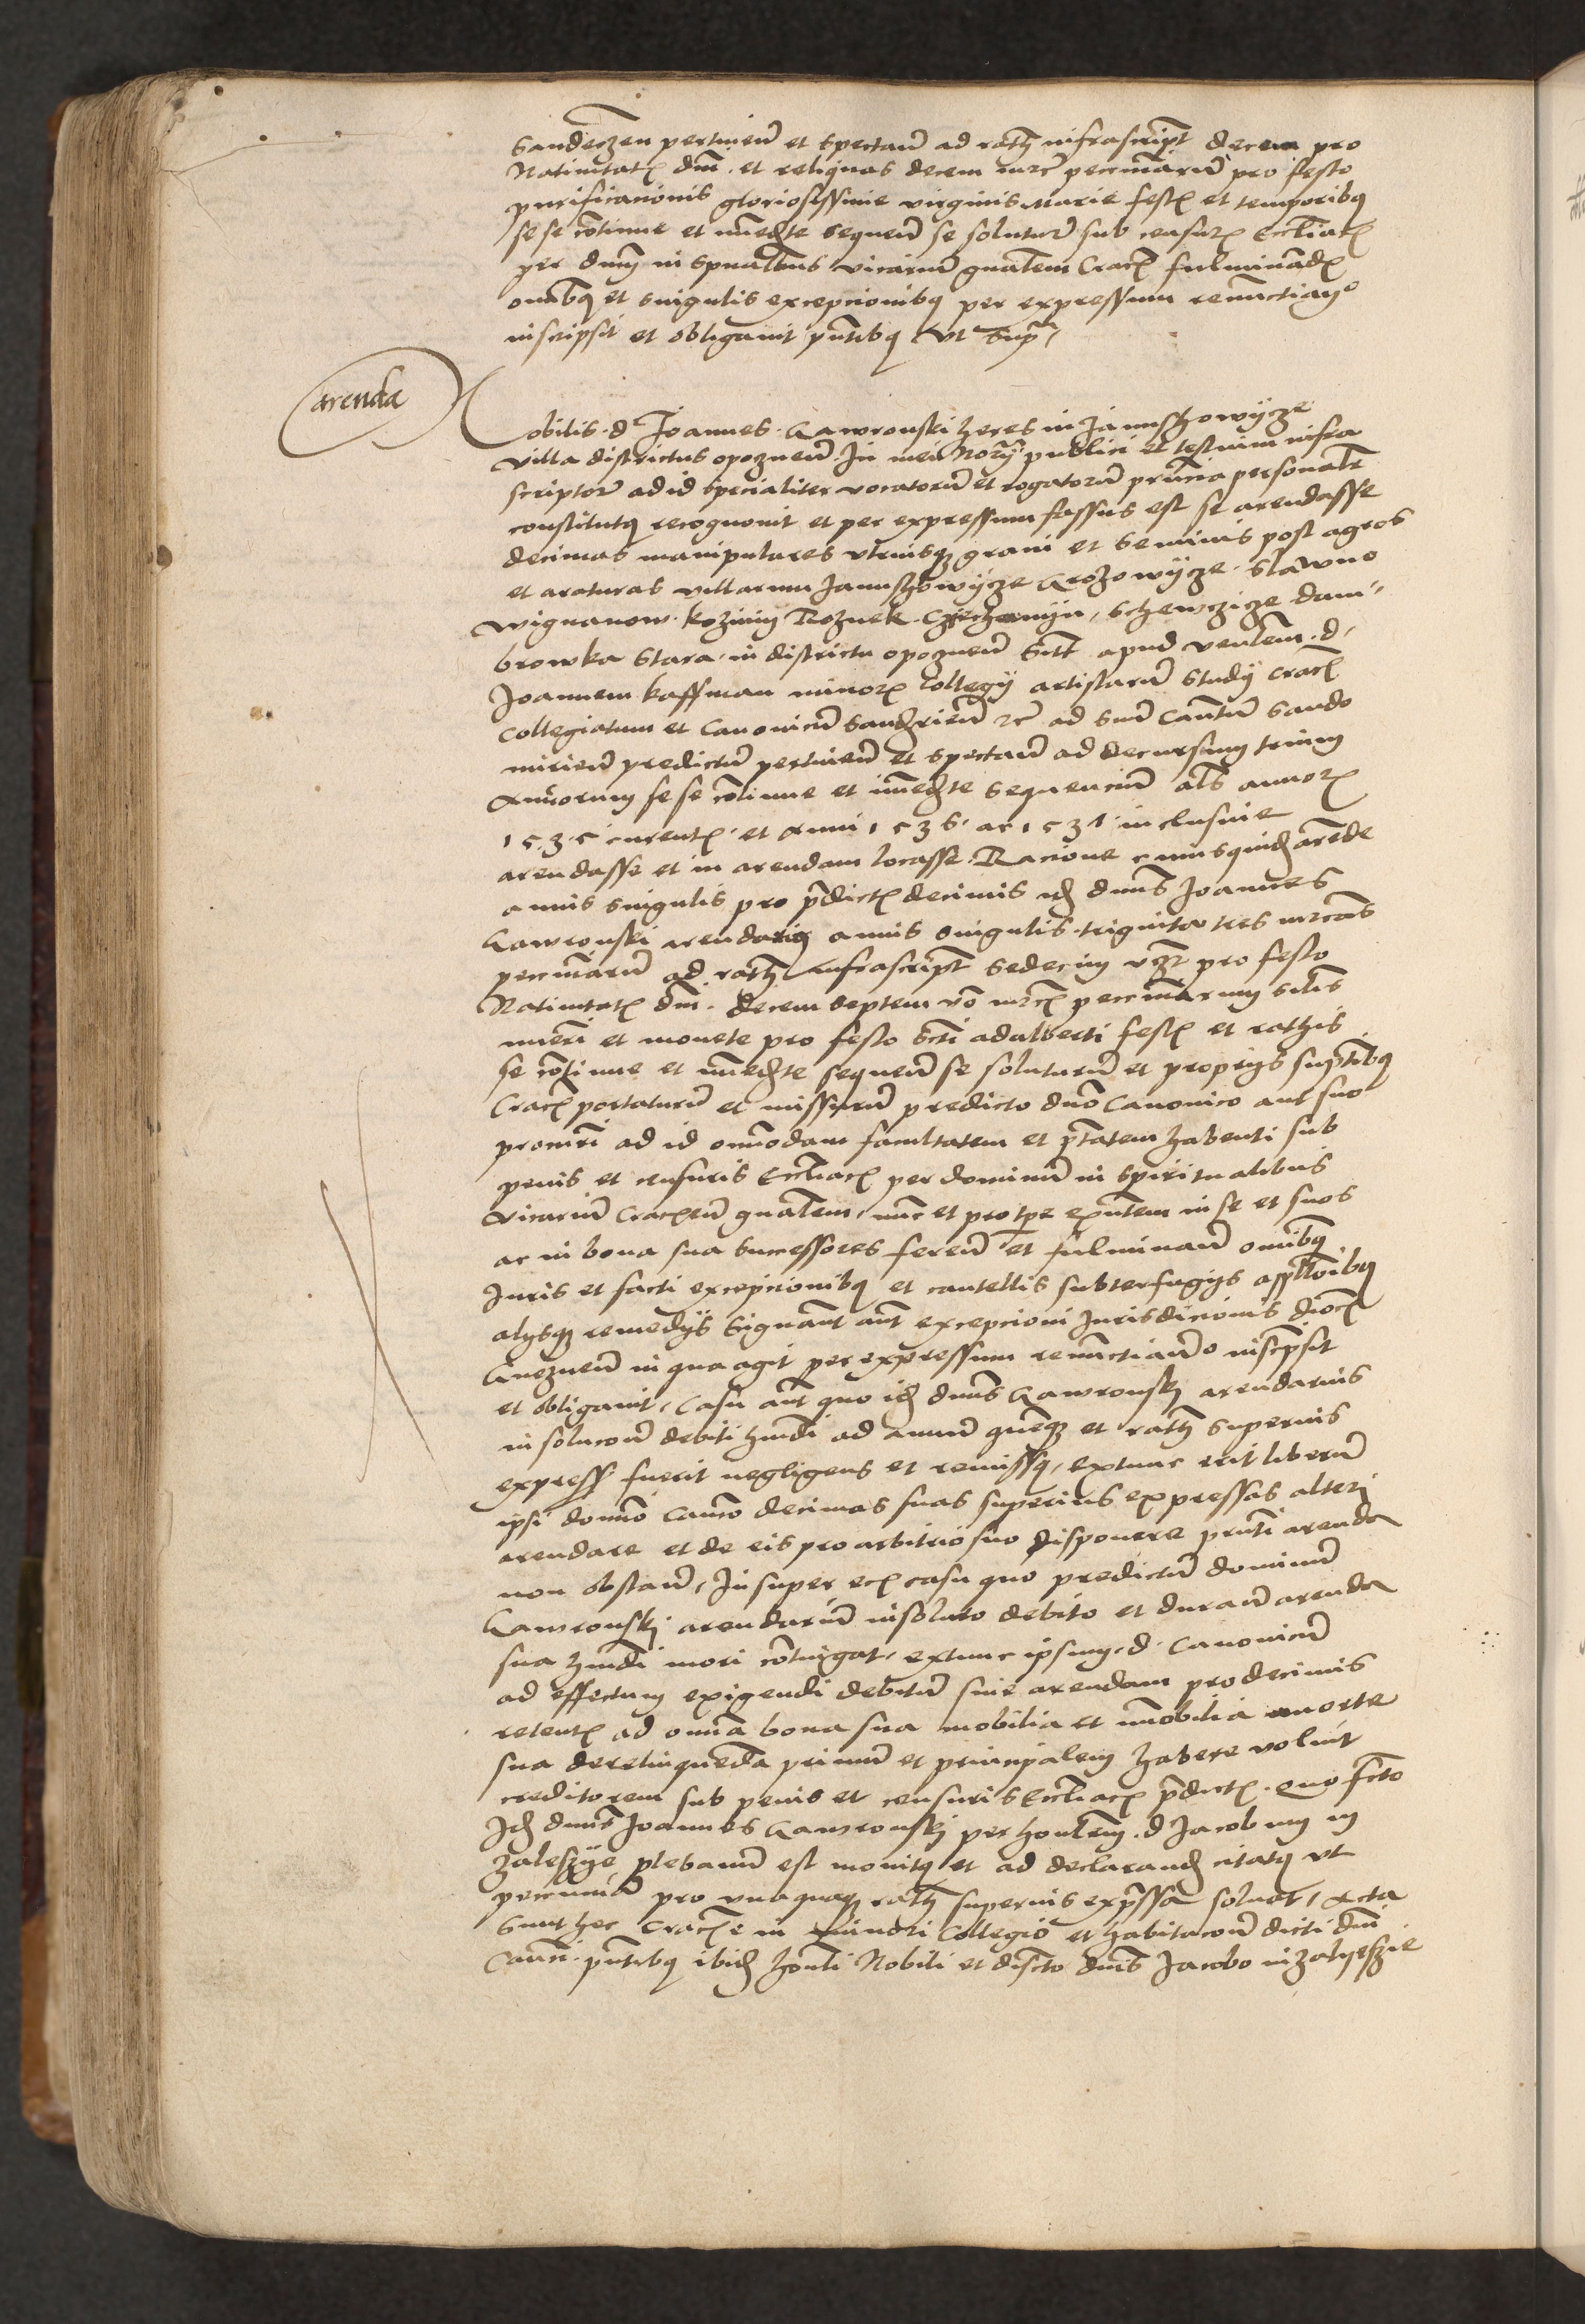 Sandeczen pertinen et spectan ad rath infrascript decem pro
Natiuitat dni . et reliquas decem mrc pecuniarum pro festo
purificacionis gloriosissime virginis Marie fest et temporibq
se se continue et immediate sequen se soluturum sub censur Eccliac
per dnm in spualibus vicarium gnalem Crac fulminand
omnibq et singulis excepcionibq per expressum renunctiando
inscripsit et obligauit pntibq vt supra
arenda
Nobilis . d Joannes . Gawronski heres in Januschowycze
villa districtus opoznen . In mei Notarij publici et testium infra
scriptorum ad id specialiter vocatorum et rogatorum pruncia personalit
constitutq recognouit et per expressum fassus est se arendasse
decimas manipulares vtriusq grani et seminis post agros
et araturas villarum Januschowycze Grozowycze . Slawno
Wignanow . Kozinin Roznek . Czechomijn , Schewczicze dam
browka Stara . in districtu opoznen sitt apud venlem . d .
Joannem kaffman minor collegij artistarum studij Crac
Collegiatum et Canonicum Sandrien etc ad suum Canonicatum Sando
mirien predictum pertinen et spectan ad decursum trium
Annorum se se continue et immediate sequencium als annor
1 5 3 5 curent . et Anni 1 5 3 6 . ac 1 5 3 7 . inclusiue
arendasse et in arendam locasse . Racione cuiusquidem arende
annis singulis pro predict decimis idem dnus Joannes
Gawronski arendariq annis singulis . triginta tres mrcas
pecuniarum ad rath infrascript sedecim vzt pro festo
Natiuitat dni . decem septem vero mrc pecuniarum silis
numeri et monete pro festo scti adalberti fest et rathis
se continue et immediate sequen se soluturum et proprijs sumptibq
Crac portaturum et missurum predicto dno Canonico aut suo
procuratori ad id omnimodam facultatem et ptatem habenti sub
penis et censuris Eccliac per dominum in spiritualibus
vicarium Cracouien gnalem , nunc et pro tpre existentem in se et suos
ac in bona sua successores feren et fulminan omnibq
Iuris et facti excepcionibq et cautellis subterfugijs appellonibq
alijsq remedijs signant aut excepcioni Jurisdicionis dioc
Gneznen in qua agit per expressum renunctiando inscripsit
et obligauit , Casu aut quo idem dnus Gawronskj arendarius
in solucione debiti hmodi ad annum quemq et rath superius
express fuerit negligens et remissq , extunc erit liberum
ipsi domino Canonico decimas suas superius expressas alteri
arendare et de eis pro arbitrio suo disponere pnti arenda
non obstan , Insuper eciam casu quo predictum dominum
Gawronskj arendarium insoluto debito et duran arenda
sua hmodi mori contingat , extunc ipsum , d . Canonicum
ad effectum exigendi debitum siue arendam pro decimis
retent ad omnia bona sua mobilia et immobilia morte
sua derelinquenda primum et principalem habere voluit
creditorem sub penis et censuris Eccliac predict . Quo fcto
Idem dnus Joannes Gawronskj per honlem . d Jacobum in
Zaleszye plebanum est monitq et ad declarand citatq vt
pecuniam pro vnaquaq rath superius expressa soluat , Acta
sunt hec Cracie in minori Collegio et habitacione dicti dni
Canonici . pntibq ibidem honli Nobili et discreto dnis Jacobo in Zalyeszie